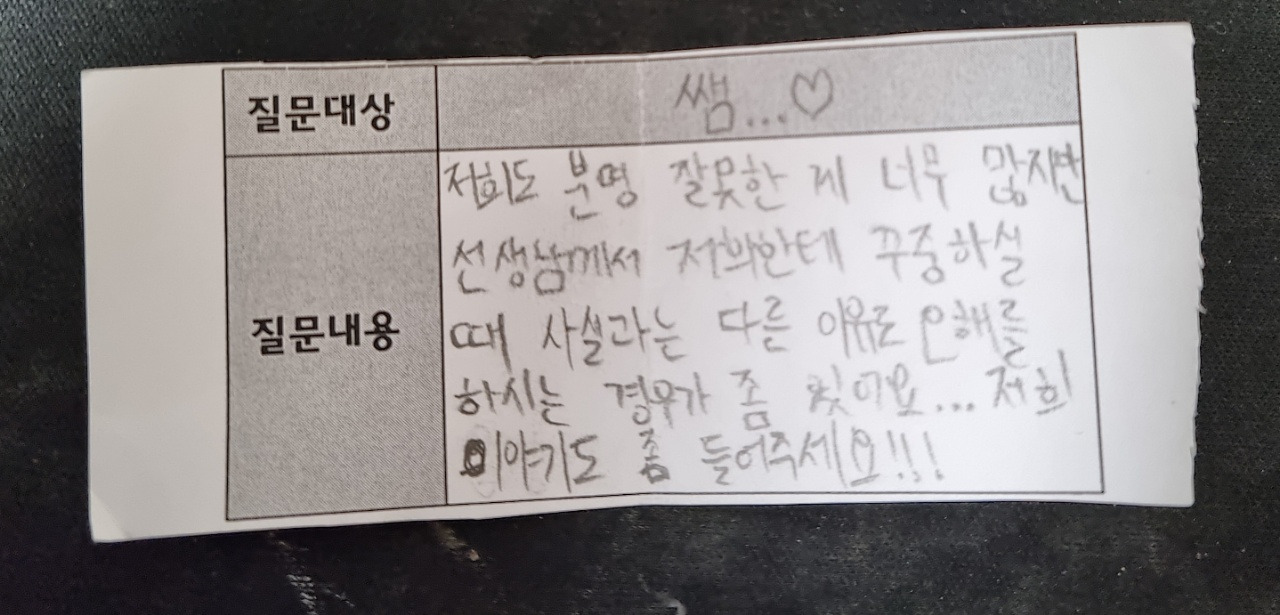 질문대상
쌤...♡
저희도 분명 잘못한 게 너무 많지만
선생님께서 저희한테 꾸중하실
질문내용
때 사실과는 다른 이유로 오해를
하시는 경우가 좀 있어요... 저희
이야기도 좀 들어주세요!!!